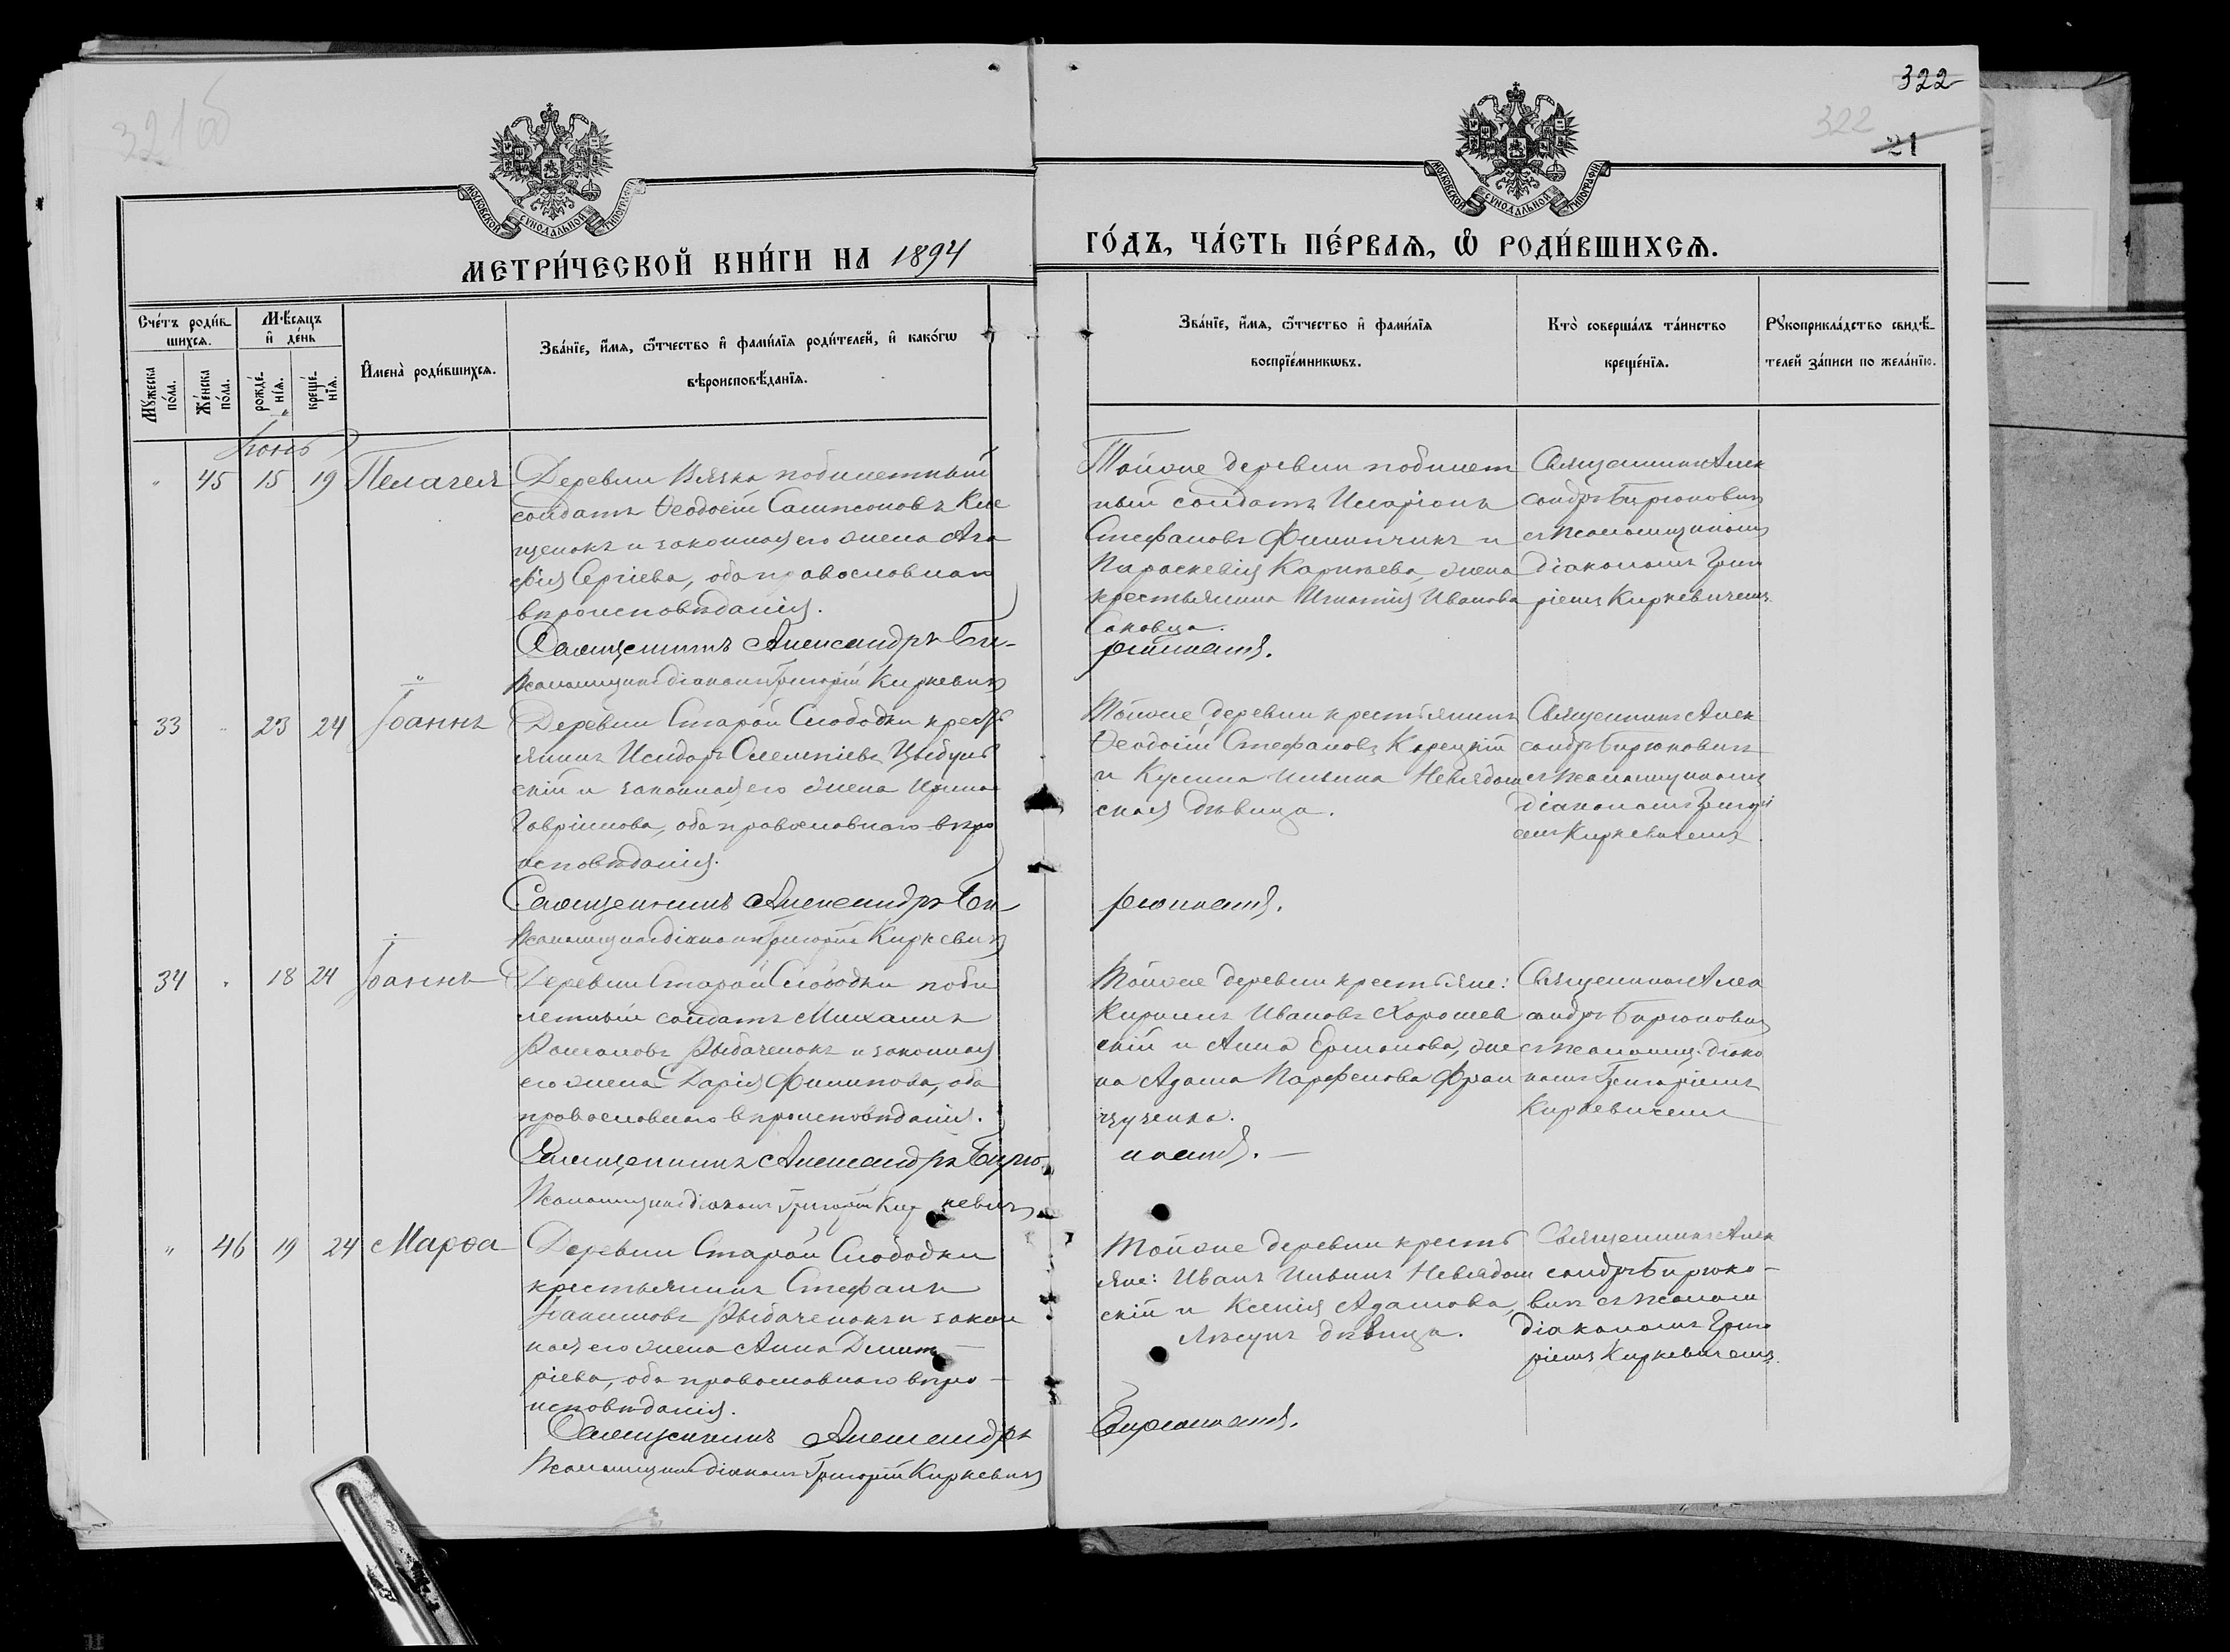 321об
322
322
21
МОСКОВСКОЙ СУНОДАЛЬНОЙ ТИПОГРАФІИ
МОСКОВСКОЙ СУНОДАЛЬНОЙ ТИПОГРАФІИ
МЕТРИ́ЧЕСКОЙ КНИ́ГИ НА 1894
ГО́ДЪ, ЧА́СТЬ ПЕ́РВАѦ, Ѡ РОДИ́ВШИХСѦ.
Сче́тъ роди́в-
шихсѧ.
Мѣ́сѧцъ
и де́нь
Мꙋ́жеска
по́ла.
Же́нска
по́ла.
рожде́-
нїѧ.
креще́-
нїѧ.
И́мена роди́вшихсѧ.
Зва́нїе, и́мѧ, ѻ́тчество и фами́лїѧ роди́телей, и како́гѡ
вѣроисповѣ́данїѧ.
Зва́нїе, и́мѧ, ѻ́тчество и фами́лїѧ
воспрїе́мникѡвъ.
Кто̀ соверша́лъ та́инство
креще́нїѧ.
Рꙋкоприкла́дство свидѣ́-
телей за́писи по жела́нїю.
Іюнь
" 45 15 19 Пелагея
Деревни Вязка побилетный
солдатъ Ѳеодосій Сампсоновъ Кле
щенокъ и законная его жена Ага
фія Сергіева, оба православнаго
вѣроисповѣданія.
Священникъ Александръ Би-
Псаломщикъ діаконъ Григорій Киркевичъ
Тойже деревни побилет
ный солдатъ Иларіонъ
Стефановъ Филипчикъ и
Параскевія Карпѣева, жена
крестьянина Игнатія Иванова
Саковца.
рюковичъ.
Священникъ Алек
сандръ Бирюковичъ
съ псаломщикомъ
діакономъ Григо
ріемъ Киркевичемъ.
33 " 23 24 Іоаннъ
Деревни Старой Слободки кресть
янинъ Исидоръ Олемпіевъ Цыбуль
скій и законная его жена Ирина
Гавріилова, оба православнаго вѣро
исповѣданія.
Священникъ Александръ Би
Псаломщикъ діаконъ Григорій Киркевичъ
Тойже деревни крестьянинъ
Ѳеодосій Стефановъ Корецкій
и Кулина Ильина Невядом
ская дѣвица.
рюковичъ.
Священникъ Алек
сандръ Бирюковичъ
съ псаломщикомъ
діакономъ Григорі
емъ Киркевичемъ
34 " 18 24 Іоаннъ
Деревни Старой Слободки поби
летный солдатъ Михаилъ
Романовъ Рыбаченокъ и законная
его жена Дарія Филипова, оба
православнаго вѣроисповѣданія.
Священникъ Александръ Бирю
Псаломщикъ діаконъ Григорій Киркевичъ
Тойже деревни крестьяне:
Кириллъ Ивановъ Хорошев
скій и Анна Ермолова, же
на Адама Парфенова Фран
цузенка.
ковичъ. —
Священникъ Алек
сандръ Бирюковичъ
съ псаломщ. діако
номъ Григоріемъ
Киркевичемъ
" 46 19 24 Марѳа
Деревни Старой Слободки
крестьянинъ Стефанъ
Іоакимовъ Рыбаченокъ и закон
ная его жена Анна Димит—
ріева, оба православнаго вѣро—
исповѣданія.
Священникъ Александръ
Псаломщикъ діаконъ Григорій Киркевичъ
Тойже деревни кресть
яне: Иванъ Ильинъ Невядом
скій и Ксенія Адамова
дѣвица.
Бирюковичъ.
Священникъ Алек
сандръ Бирюко-
вичъ съ псаломщ
діакономъ Григо
ріемъ Киркевичемъ.